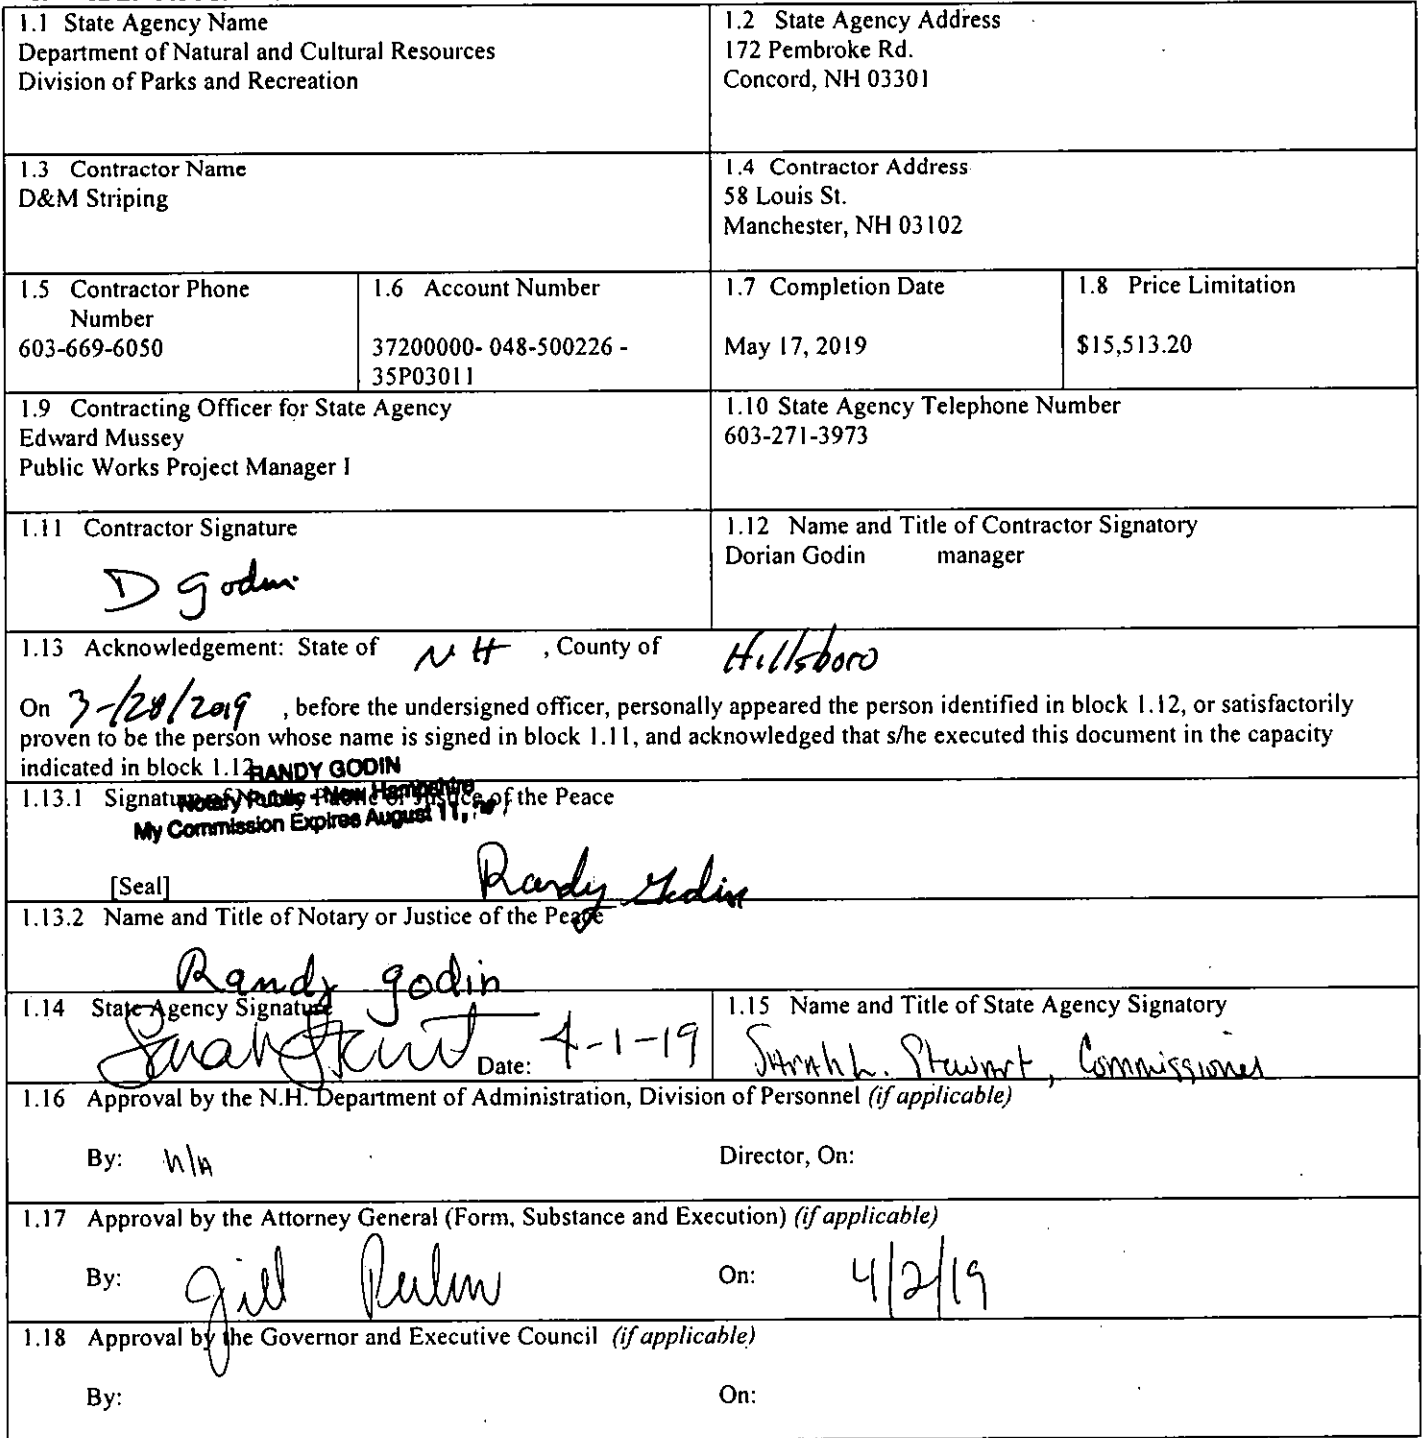 1.1 State Agency Name
Department of Natural and Cultural Resources
Division of Parks and Recreation
1.2 State Agency Address
172 Pembroke Rd.
Concord, NH 03301
1.3 Contractor Name
D&M Striping
1.4 Contractor Address
58 Louis St.
Manchester, NH 03102
1.5 Contractor Phone
Number
603-669-6050
1.6 Account Number
37200000- 048-500226 -
35P03011
1.7 Completion Date
May 17, 2019
1.8 Price Limitation
$15,513.20
1.9 Contracting Officer for State Agency
Edward Mussey
Public Works Project Manager I
1.10 State Agency Telephone Number
603-271-3973
1.11 Contractor Signature
D Godin
1.12 Name and Title of Contractor Signatory
Dorian Godin manager
1.13 Acknowledgement: State of NH , County of Hillsboro
On 3-/28/2019 , before the undersigned officer, personally appeared the person identified in block 1.12, or satisfactorily
proven to be the person whose name is signed in block 1.11, and acknowledged that s/he executed this document in the capacity
indicated in block 1.12
RANDY GODIN
1.13.1 Signature of Notary Public or Justice of the Peace
Notary Public - New Hampshire
My Commission Expires August 11,
[Seal]
Randy Godin
1.13.2 Name and Title of Notary or Justice of the Peace
Randy Godin
1.14 State Agency Signature
Date: 4-1-19
1.15 Name and Title of State Agency Signatory
Sarah L. Stewart, Commissioner
1.16 Approval by the N.H. Department of Administration, Division of Personnel (if applicable)
By: N/A Director, On:
1.17 Approval by the Attorney General (Form, Substance and Execution) (if applicable)
By: Jill On: 4/2/19
1.18 Approval by the Governor and Executive Council (if applicable)
By: On: